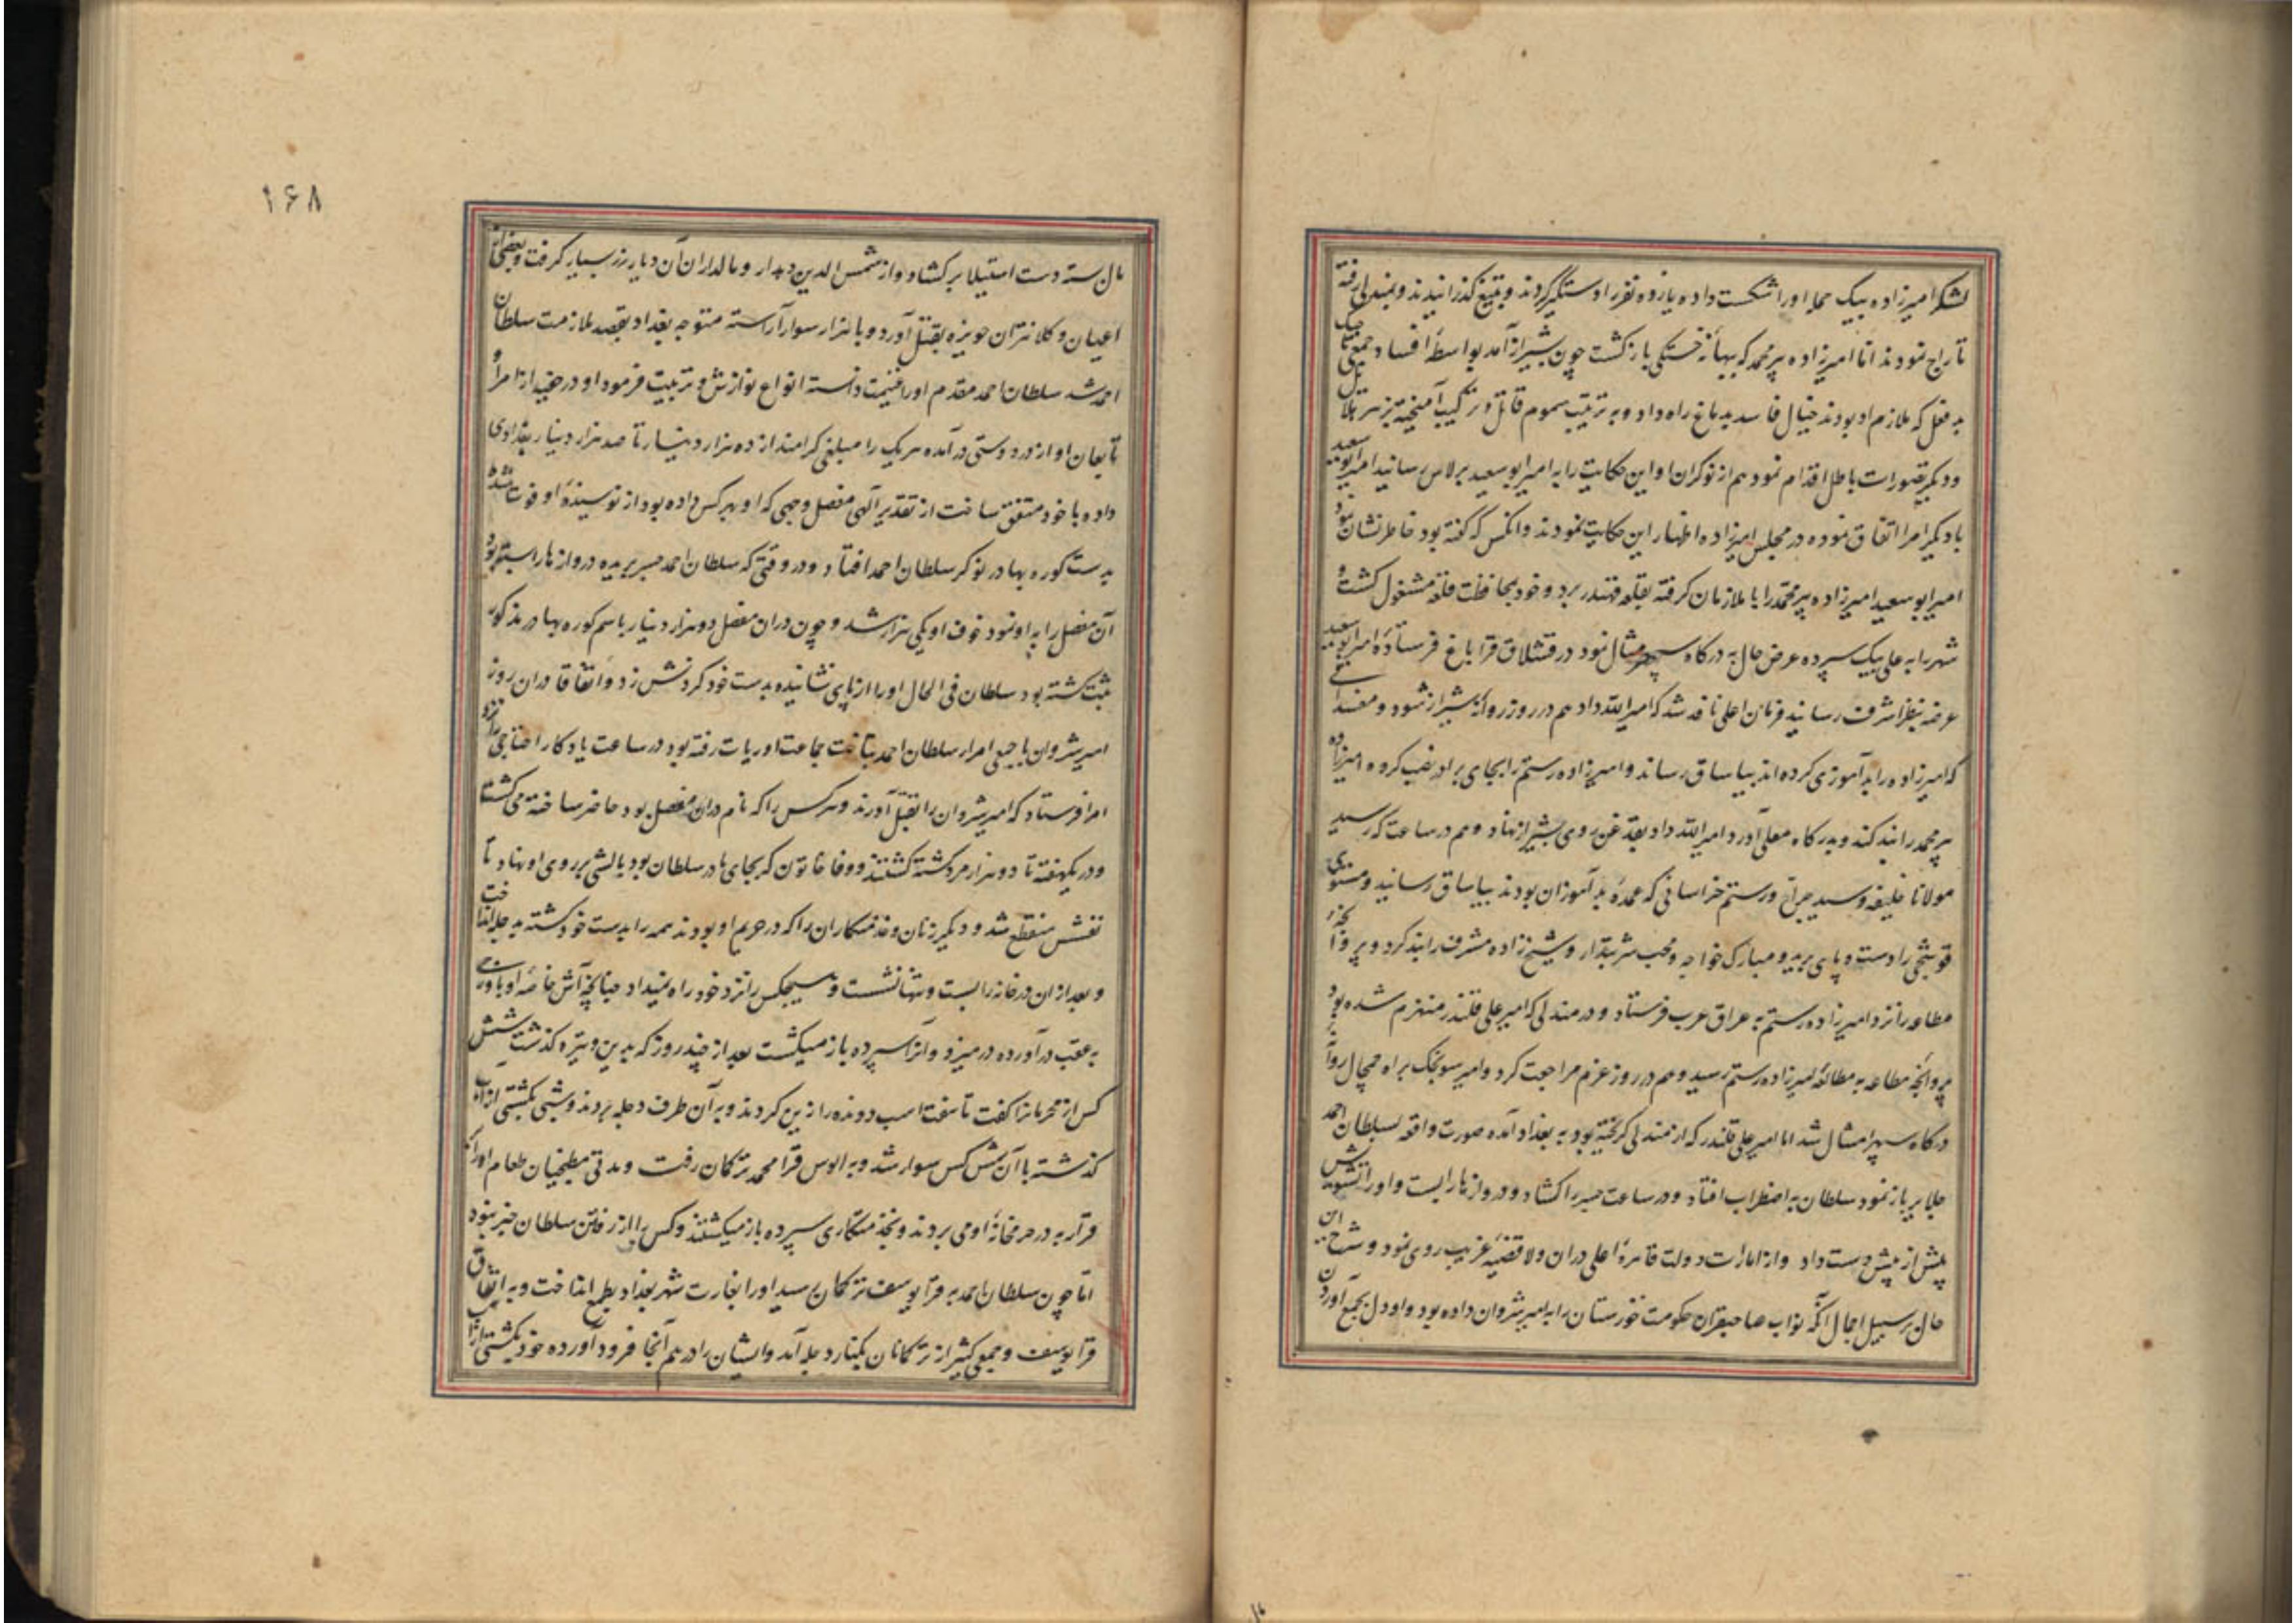 لشکر امیرزاده بیک حمله او را شکست داده یازده نفر را دستگیر کردند و بتیغ گذرانیدند و بمندلی رفته
تاراج نمودند اما امیرزاده پیر محمد که ببهانهٔ خستگی بازگشت چون بشیراز آمد بواسطهٔ افساد جمعی تاجیک
بد فعل که ملازم او بودند خیال فاسد بدماغ راه داد و به ترتیب سموم قاتل و ترکیب آمیخته بزهر هلاهل
و دیگر تصورات باطل اقدام نمود هم از نوکران او این حکایت را به امیر ابو سعید برلاس رسانید امیر ابو سعید
با دیگر امرا اتفاق نموده در مجلس امیرزاده اظهار این حکایت نمودند و آنکس که گفته بود خاطر نشان نمود
امیر ابو سعید امیرزاده پیر محمد را با ملازمان گرفته بقلعه قهندر برد و خود بمحافظت قلعه مشغول گشت و
شهر را به علی بیک سپرده عرض حال به درگاه سپهر مثال نمود در قشلاق قراباغ فرستادهٔ امیر ابو سعید
عرضه بنظر اشرف رسانید فرمان اعلی نافذ شد که امیر الله داد هم در روز روانهٔ شیراز شود و مفسدانی
که امیرزاده را بد آموزی کرده‌اند بیاساق رساند و امیرزاده رستم را بجای برادر نصب کرده امیرزاده
پیر محمد را بند کند و بدرگاه معلی آورد امیر الله داد بقدغن روی بشیراز نهاد و هم در ساعت که رسید
مولانا خلیفه و سید جراح و رستم خراسانی که عمدهٔ بد آموزان بودند بیاساق رسانید و مستوی
قوشچی را دست و پای برید و مبارک خواجه و محب شربتدار و شیخ زاده مشرف را بند کرد و پروانجه
مطاعه را نزد امیرزاده رستم به عراق عرب فرستاد و در مندلی که امیر علی قلندر منهزم شده بود
پروانجه مطاعه به مطالعهٔ امیرزاده رستم رسید و هم در روز عزم مراجعت کرد و امیر سونجک براه چمچال روانه
درگاه سپهر امتثال شد اما امیر علی قلندر که از مندلی گریخته بود به بغداد آمده صورت واقعه بسلطان احمد
جلایر باز نمود سلطان به اضطراب افتاد و در ساعت جسر را گشاد و دروازها را بست و او را تشویش
بیش از پیش دست داد و از امارات دولت قاهرهٔ اعلی در آن ولا قضیهٔ غریب روی نمود و شرح این
حال بر سبیل اجمال آنکه نواب صاحبقران حکومت خوزستان را به امیر شروان داده بود و او دل بجمع آوردن
مال
۱۶۸
مال بسته دست استیلا بر گشاد و از شمس الدین دهدار و مالداران آن دیار زر بسیار گرفت و بعضی از
اعیان و کلانتران حویزه بقتل آورد و با هزار سوار آراسته متوجه بغداد بقصد ملازمت سلطان
احمد شد سلطان احمد مقدم او را غنیمت دانسته انواع نوازش و تربیت فرمود او در خفیه از امرا و
تابعان او از در دوستی در آمده هر یک را مبلغی گرامند از ده هزار دینار تا صد هزار دینار بغدادی
داده با خود متفق ساخت از تقدیر الهی مفصل وجهی که او بهر کس داده بود از نویسندهٔ او فوت شد
بدست کوره بهادر نوکر سلطان احمد افتاد و در وقتی که سلطان احمد جسر بریده دروازها را بسته بود
آن مفصل را به او نمود خوف او یکی هزار شد و چون در آن مفصل دو هزار دینار باسم کوره بهادر مذکور
ثبت گشته بود سلطان فی الحال او را از پای نشانیده بدست خود گردنش زد و اتفاقا در آن روز
امیر شروان با جمعی امراء سلطان احمد بتاخت جماعت اویرات رفته بود در ساعت یادگار اختاجی را نزد
امرا فرستاد که امیر شروان را بقتل آورند و هر کس را که نام در آن مفصل بود حاضر ساخته می کشت تا
و در یکهفته تا دو هزار مرد کشته گشتند و وفا خاتون که بجای مادر سلطان بود بالشی بر روی او نهاد تا
نفسش منقطع شد و دیگر زنان و خدمتکاران را که در حرم او بودند همه را بدست خود کشته بدجله انداخت
و بعد از آن در خانه را بست و تنها نشست و هیچکس را نزد خود راه نمیداد چنانچه آش خاصهٔ او باورچی
به عقب در آورده در میزد و آنرا سپرده باز میگشت بعد از چند روز که بدین وتیره گذشت شش
کس از محرمانرا گفت تا هفت اسب دونده را زین کردند و به آن طرف دجله بردند و شبی بکشتی از آب
گذشته با آن شش کس سوار شد و به الوس قرا محمد ترکمان رفت و مدتی مطبخیان طعام او را که
قرار به در حرمخانهٔ او می بردند و بخدمتکاری سپرده باز میگشتند و کس را از رفتن سلطان خبر نبود
اما چون سلطان احمد بر قرا یوسف ترکمان رسید او را بغارت شهر بغداد بطمع انداخت و به اتفاق
قرا یوسف و جمعی کثیر از ترکمانان بکنار دجله آمد و ایشان را در هم آنجا فرود آورده خود بکشتی از آب